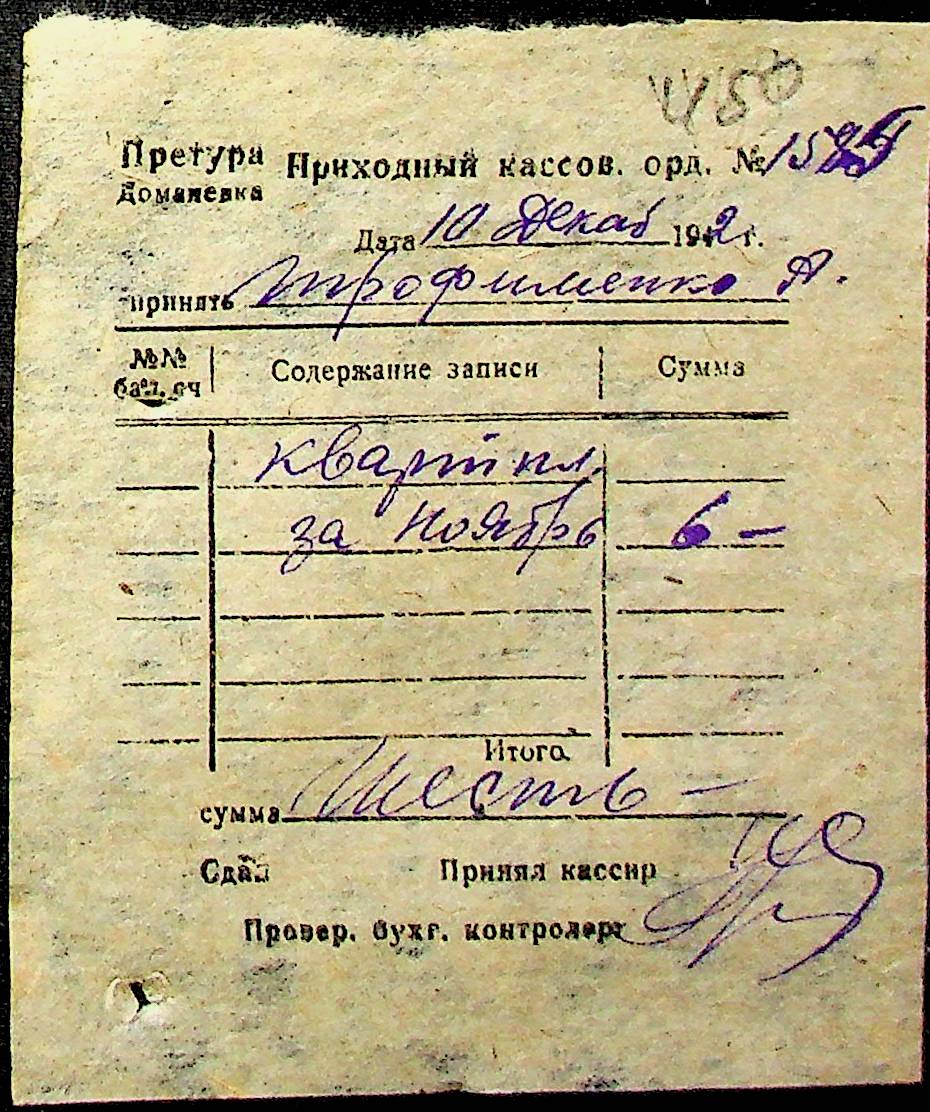 450
Претура Приходный кассов. орд. №
Доманевка
Дата 10 Декаб 1942 г.
принять Трофименко А.
№№ бал. сч Содержание записи Сумма
Квартпл.
за Ноябрь 6 —
Итого
сумма Шесть —
Сдал Принял кассир
Провер. бухг. контролер